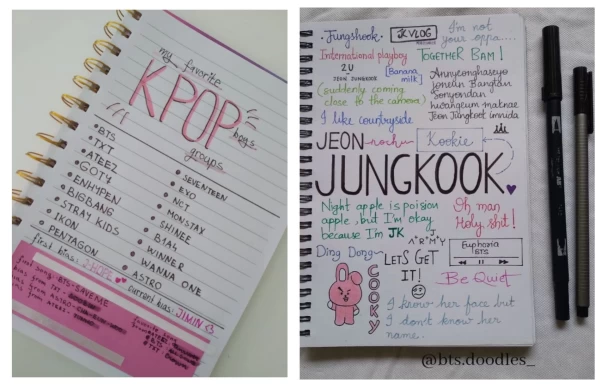 my favorite
KPOP
boys
groups
BTS
TXT
ATEEZ
GOT7
ENHYPEN
BIGBANG
STRAY KIDS
IKON
PENTAGON
SEVENTEEN
EXO
NCT
MONSTAX
SHINEE
B1A4
WINNER
WANNA ONE
ASTRO
first bias: J-HOPE
current bias: JIMIN
first song: BTS-SAVE ME
Jungshook
JK VLOG
I'm not
your oppa....
International playboy
2U
JEON JUNGKOOK
[Banana
milk]
TOGETHER BAM!
(suddenly coming
close to the camera)
Annyeonghaseyo
Joneun Bangtan
Sonyeondan
hwangeum maknae
Jeon Jungkook imnida
I like countryside
JEON
Kookie
JUNGKOOK
Night apple is poision
apple, but I'm okay
because I'm JK
Oh man
Holy shit!
J
A*R*M*Y
Euphoria
BTS
Ding Dong~
LET'S GET
IT!
Be Quiet
COOKY
I know her face but
I don't know her
name.
@bts.doodles_